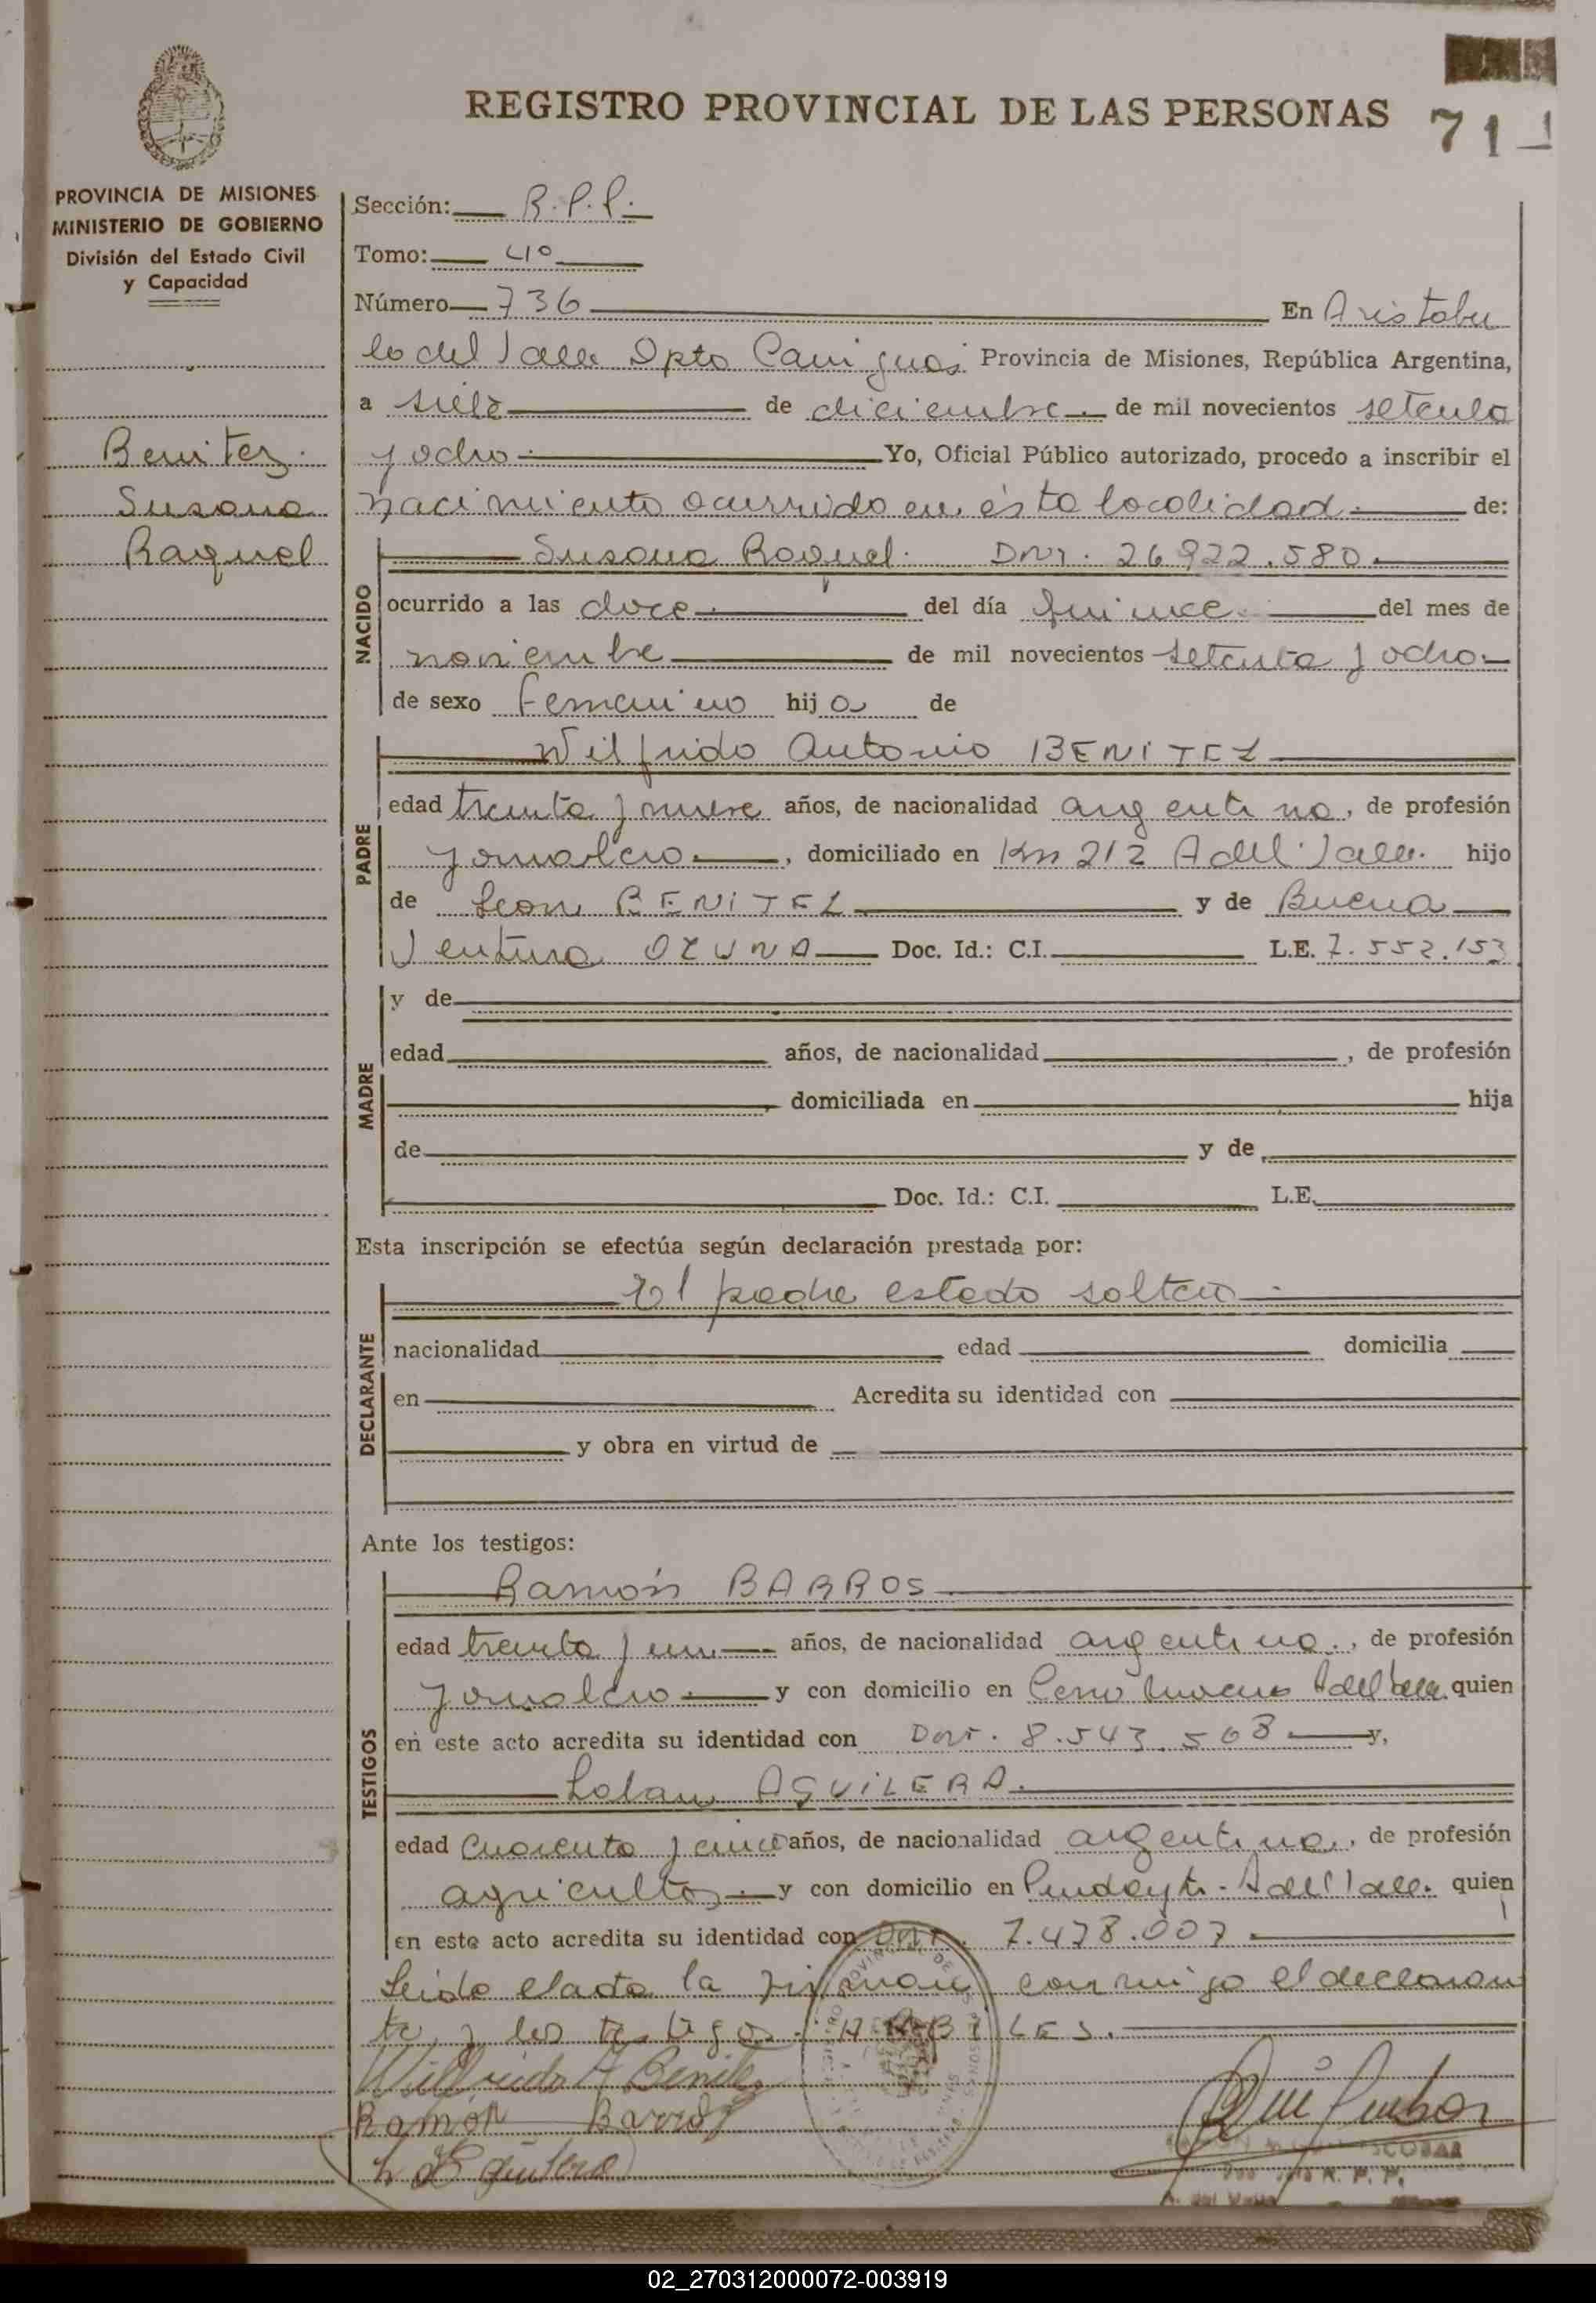 REGISTRO PROVINCIAL DE LAS PERSONAS
71
PROVINCIA DE MISIONES
MINISTERIO DE GOBIERNO
División del Estado Civil
y Capacidad
Benitez
Susana
Raquel
Sección: R.P.P.
Tomo: 4º
Número 736 En Aristobu
lo del Valle Dpto Cainguas Provincia de Misiones, República Argentina,
a siete de diciembre de mil novecientos setenta
y ocho Yo, Oficial Público autorizado, procedo a inscribir el
nacimiento ocurrido en ésta localidad de:
NACIDO
Susana Raquel. DNI. 26.922.580
ocurrido a las doce del día quince del mes de
noviembre de mil novecientos setenta y ocho
de sexo femenino hija de
PADRE
Wilfrido Antonio BENITEZ
edad treinta y nueve años, de nacionalidad argentina, de profesión
jornalero, domiciliado en Km 212 A del Valle. hijo
de Leon BENITEZ y de Buena
Ventura OZUNA Doc. Id.: C.I. L.E. 7.552.153
MADRE
y de
edad años, de nacionalidad, de profesión
domiciliada en hija
de y de
Doc. Id.: C.I. L.E.
Esta inscripción se efectúa según declaración prestada por:
DECLARANTE
El padre estado soltero
nacionalidad edad domicilia
en Acredita su identidad con
y obra en virtud de
Ante los testigos:
TESTIGOS
Ramón BARROS
edad treinta y un años, de nacionalidad argentina, de profesión
jornalero y con domicilio en Cerro Moreno A del Valle quien
en este acto acredita su identidad con DNI. 8.543.508 y,
AGUILERA
edad cuarenta y cinco años, de nacionalidad argentina, de profesión
agricultor y con domicilio en Pindayti - A del Valle. quien
en este acto acredita su identidad con DNI. 7.478.007
Leida el acta la firman conmigo el declaran
te y los testigos. HABILES.
Wilfrido A Benitez
Ramón Barros
L Aguilera
ESCOBAR
R. P. P.
A. del Valle
02_270312000072-003919